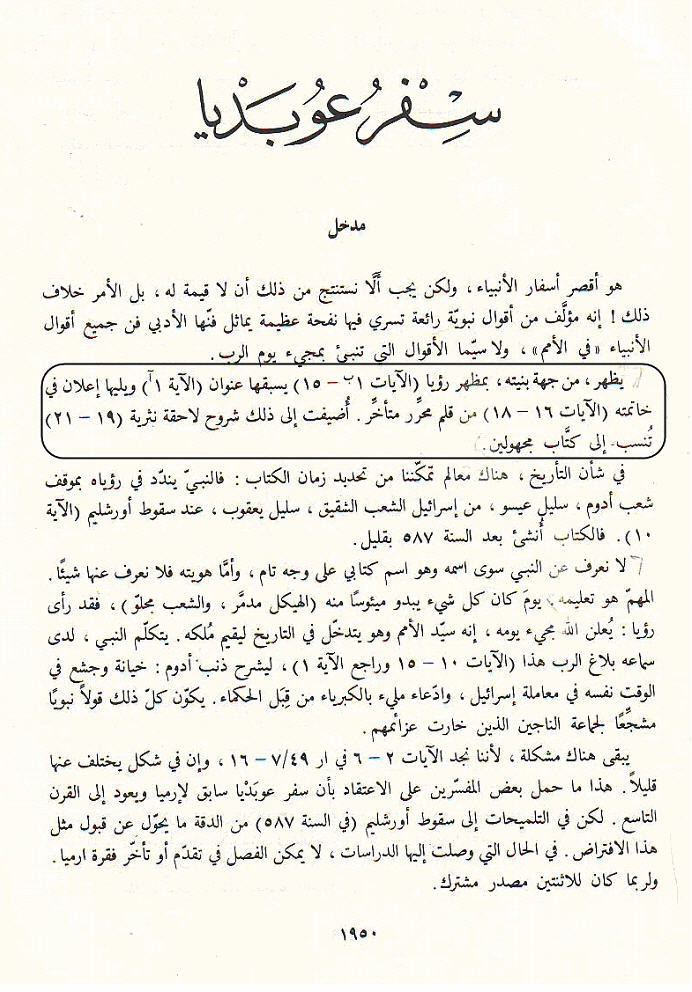 سِفْرُ عُوبَدْيا
مدخل
هو أقصر أسفار الأنبياء ، ولكن يجب ألّا نستنتج من ذلك أن لا قيمة له ، بل الأمر خلاف
ذلك ! إنه مؤلَّف من أقوال نبويّة رائعة تسري فيها نفحة عظيمة يماثل فنّها الأدبي فن جميع أقوال
الأنبياء «في الأمم» ، ولا سيّما الأقوال التي تنبئ بمجيء يوم الرب.
يظهر ، من جهة بنيته ، بمظهر رؤيا (الآيات ١ب – ١٥) يسبقها عنوان (الآية ١أ) ويليها إعلان في
خاتمته (الآيات ١٦ – ١٨) من قلم محرِّر متأخّر . أُضيفت إلى ذلك شروح لاحقة نثرية (١٩ – ٢١)
تُنسب إلى كتَّاب مجهولين.
في شأن التأريخ ، هناك معالم تمكّننا من تحديد زمان الكتاب : فالنبيّ يندّد في رؤياه بموقف
شعب أدوم ، سليل عيسو ، من إسرائيل الشعب الشقيق ، سليل يعقوب ، عند سقوط أورشليم (الآية
١٠). فالكتاب أُنشئ بعد السنة ٥٨٧ بقليل.
لا نعرف عن النبي سوى اسمه وهو اسم كتابي على وجه تام ، وأمَّا هويته فلا نعرف عنها شيئًا.
المهمّ هو تعليمه. يومَ كان كل شيء يبدو ميئوسًا منه (الهيكل مدمَّر ، والشعب مجلوّ) ، فقد رأى
رؤيا : يُعلن الله مجيء يومه ، إنه سيّد الأمم وهو يتدخّل في التاريخ ليقيم مُلكه. يتكلّم النبي ، لدى
سماعه بلاغ الرب هذا (الآيات ١٠ – ١٥ وراجع الآية ١) ، ليشرح ذنب أدوم : خيانة وجشع في
الوقت نفسه في معاملة إسرائيل ، وادّعاء مليء بالكبرياء من قِبَل الحكماء. يكوّن كلّ ذلك قولاً نبويًا
مشجِّعًا لجماعة الناجين الذين خارت عزائمهم.
يبقى هناك مشكلة ، لأننا نجد الآيات ٢ – ٦ في ار ٧/٤٩ – ١٦ ، وإن في شكل يختلف عنها
قليلاً. هذا ما حمل بعض المفسّرين على الاعتقاد بأن سفر عوبَدْيا سابق لإرميا ويعود إلى القرن
التاسع . لكن في التلميحات إلى سقوط أورشليم (في السنة ٥٨٧) من الدقة ما يحوّل عن قبول مثل
هذا الافتراض. في الحال التي وصلت إليها الدراسات ، لا يمكن الفصل في تقدّم أو تأخّر فقرة ارميا.
ولربما كان للاثنتين مصدر مشترك.
١٩٥٠